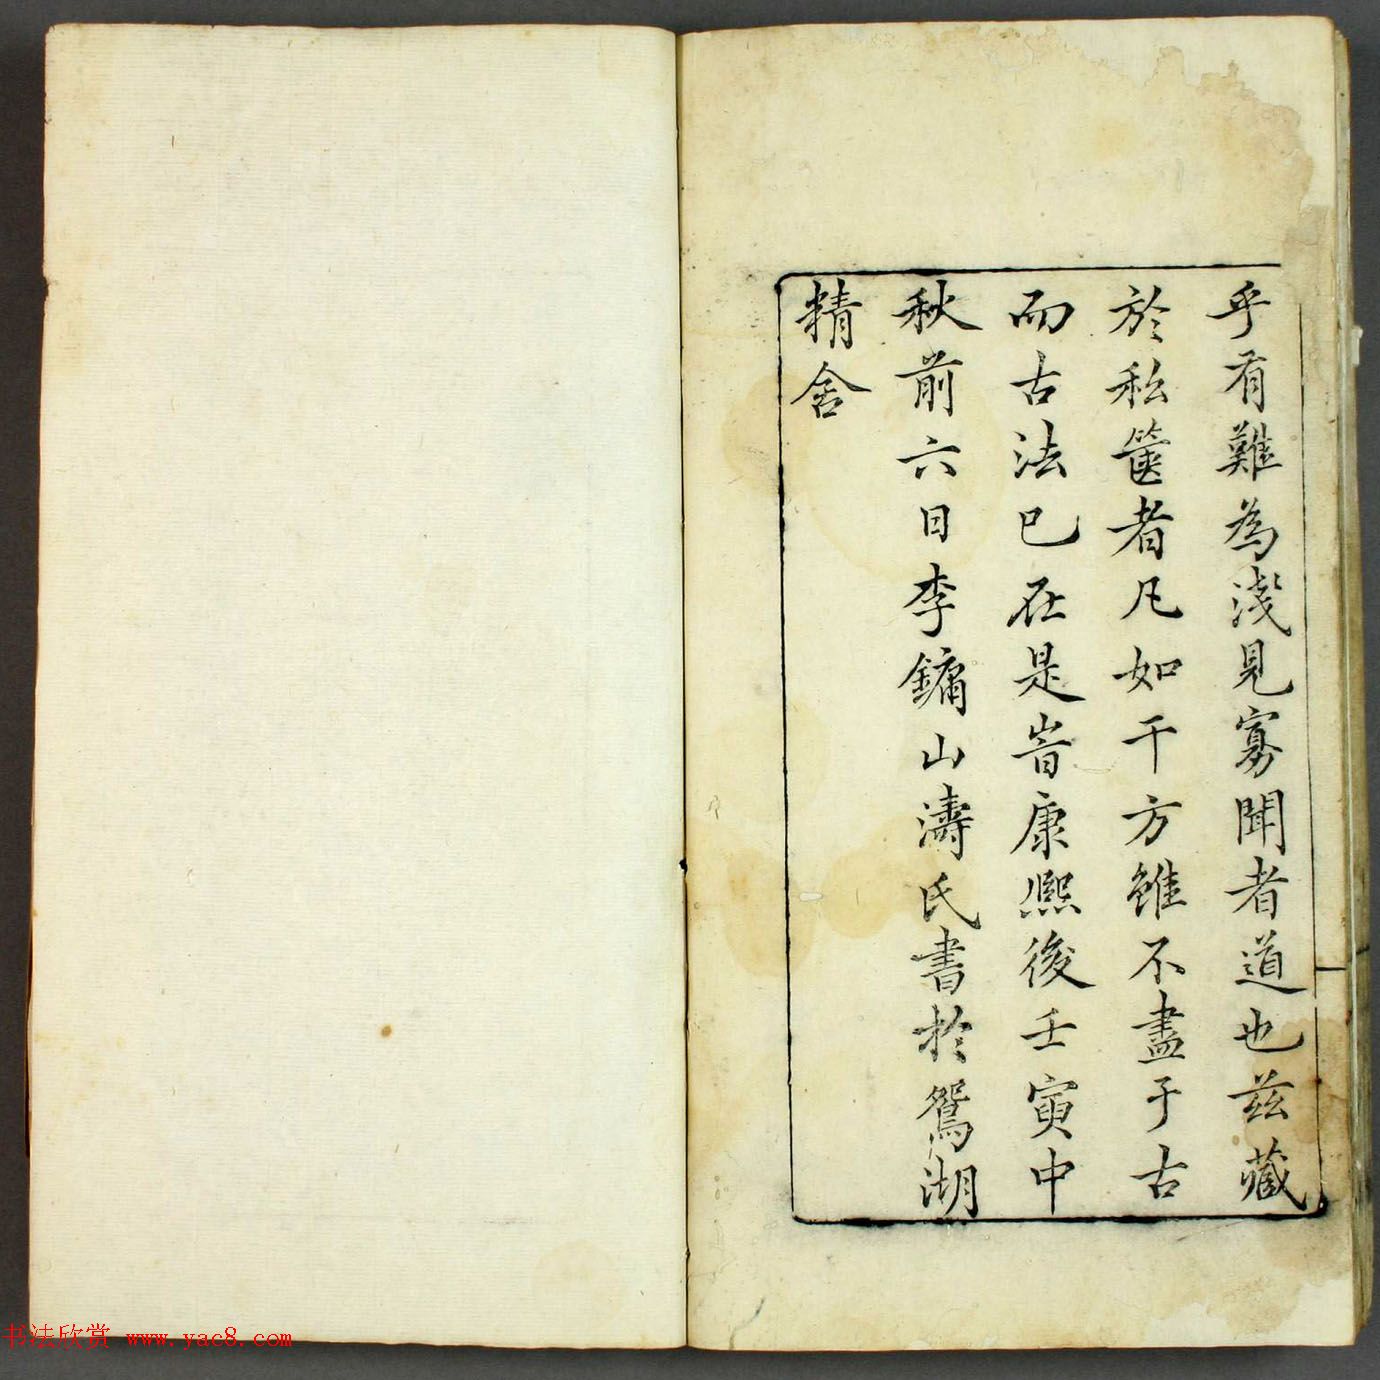 乎有難為淺見寡聞者道也茲藏
於私篋者凡如干方雖不盡于古
而古法已在是旹康熙後壬寅中
秋前六日李鏞山濤氏書於鴛湖
精舍
书法欣赏 www.yac8.com